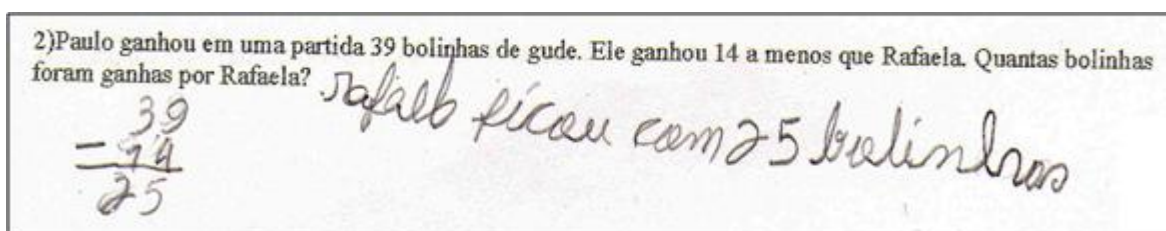 2)Paulo ganhou em uma partida 39 bolinhas de gude. Ele ganhou 14 a menos que Rafaela. Quantas bolinhas
foram ganhas por Rafaela? rafaela ficou com 25 bolinhas
39
- 14
25